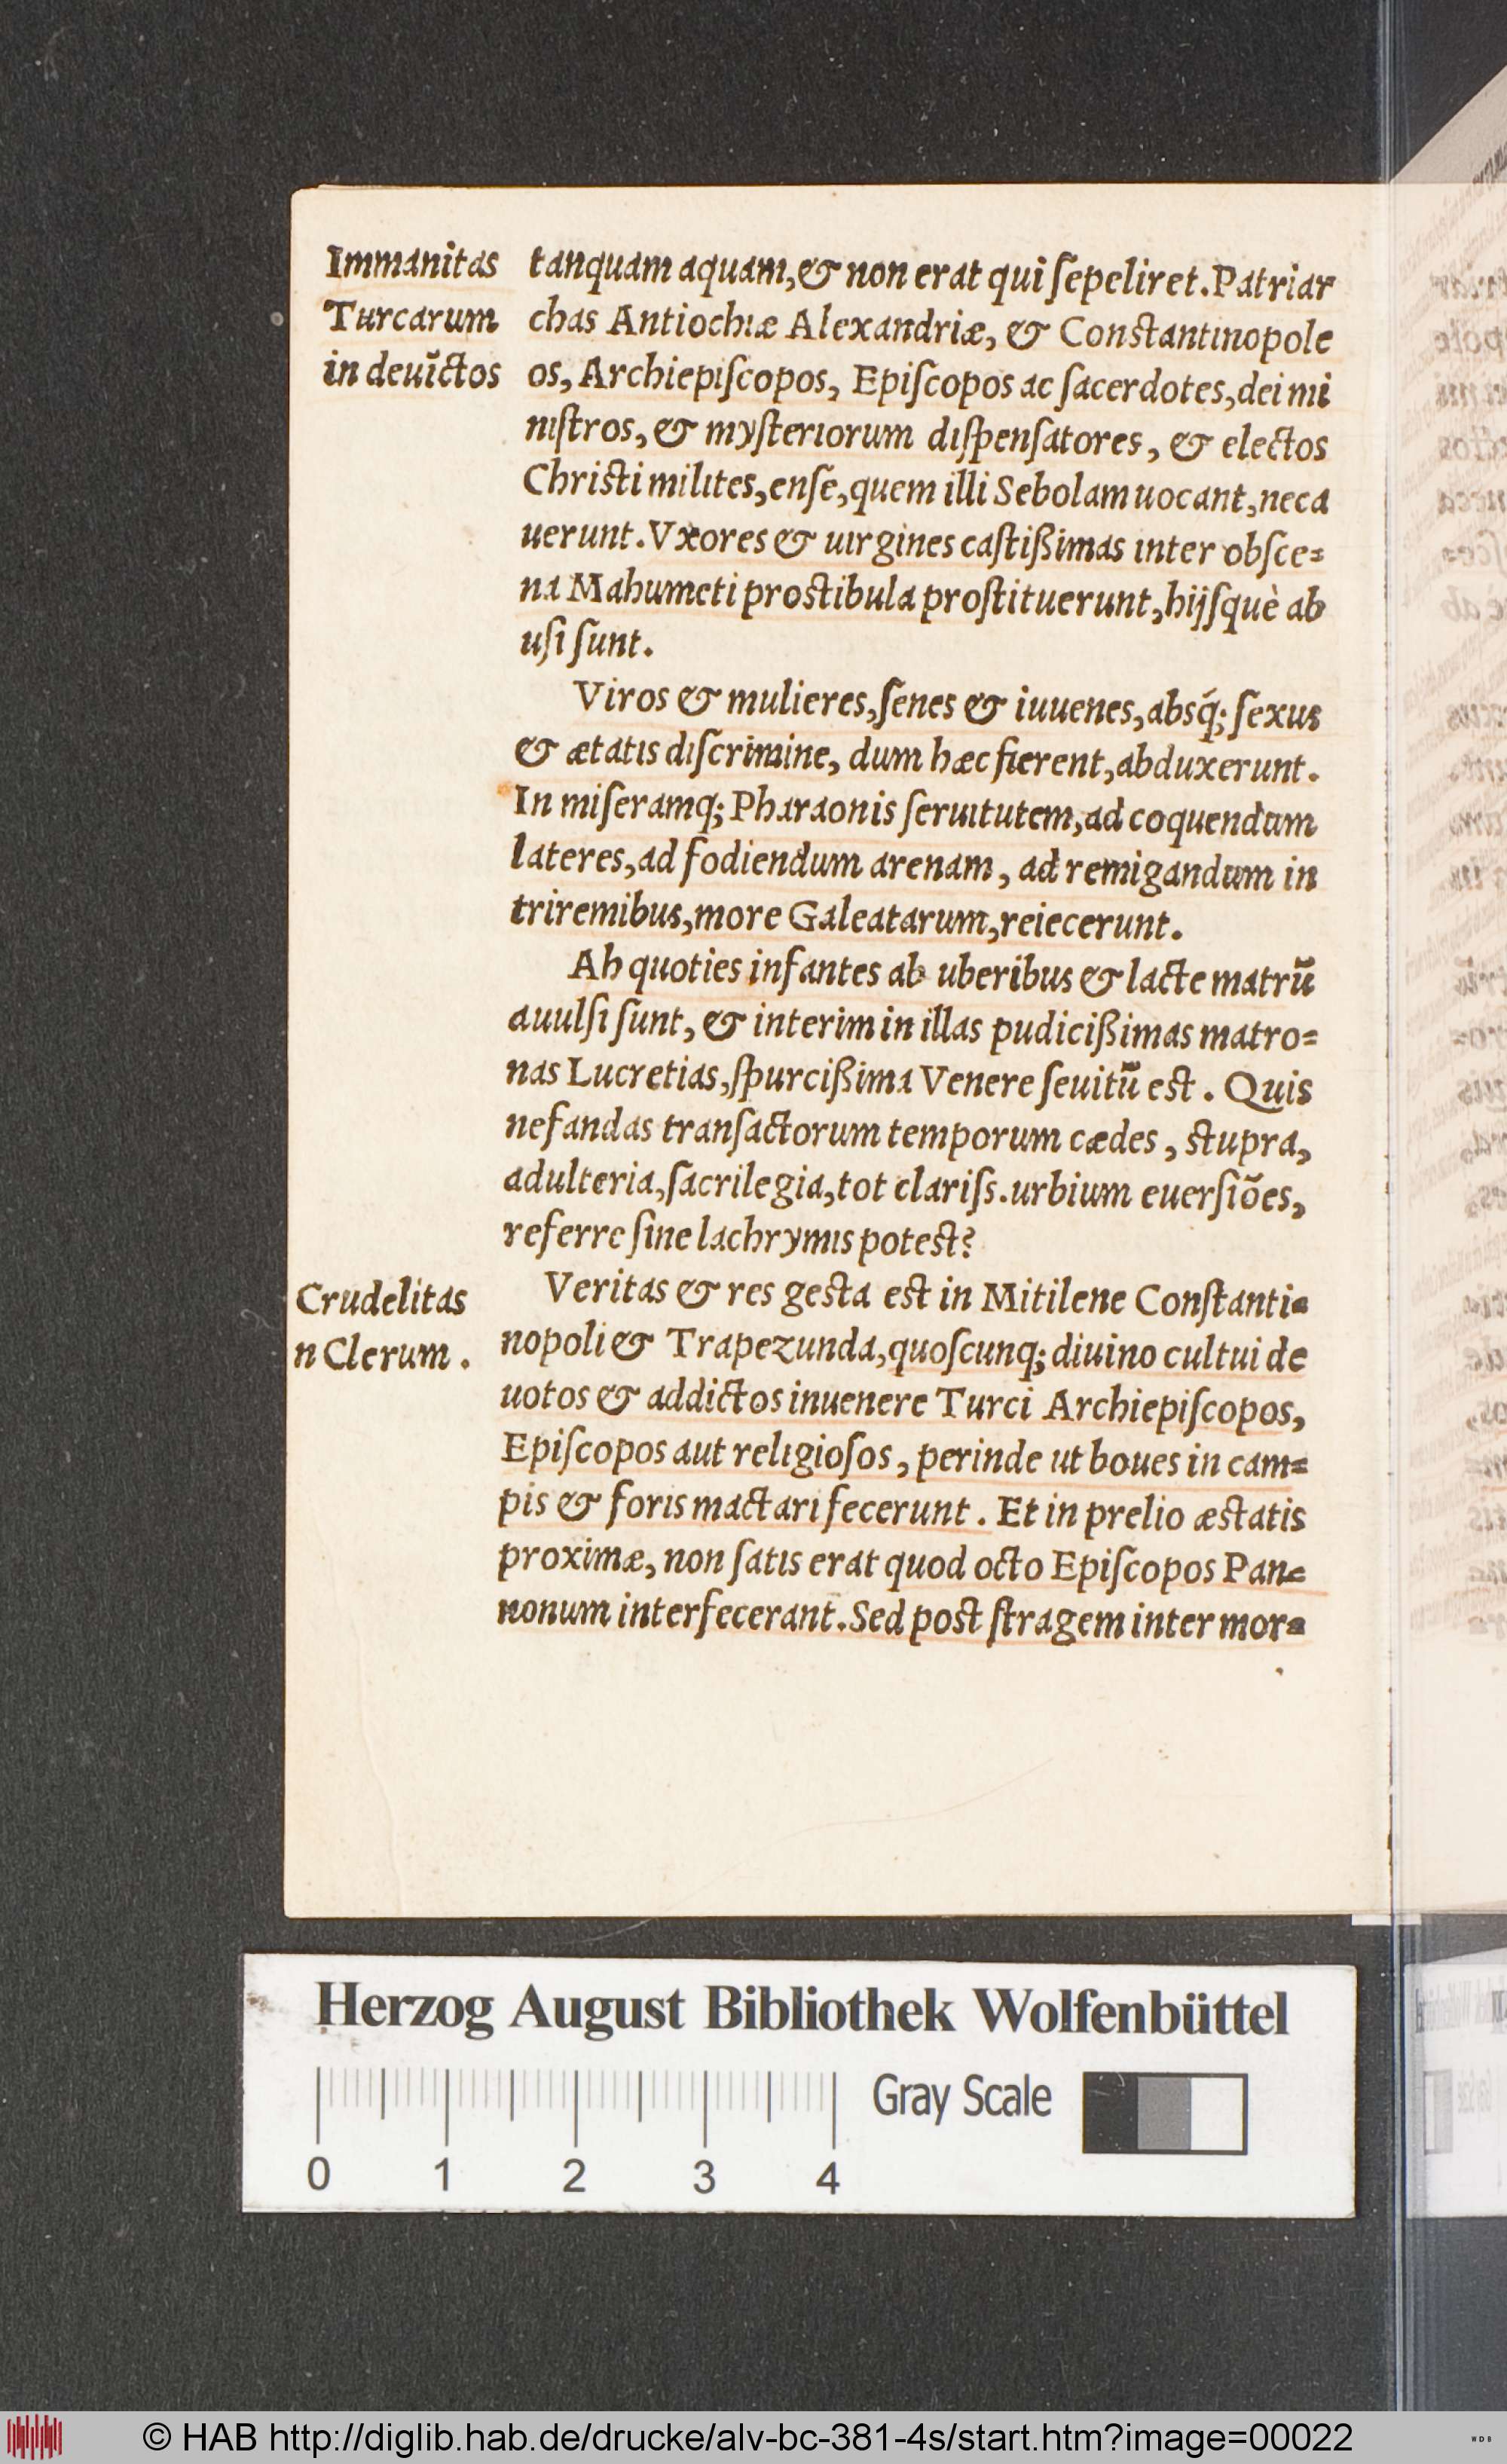 Immanitas
Turcarum
in deuĩctos
tanquam aquam, & non erat qui ſepeliret. Patriar
chas Antiochiæ Alexandriæ, & Conſtantinopole
os, Archiepiſcopos, Epiſcopos ac ſacerdotes, dei mi
niſtros, & myſteriorum diſpenſatores, & electos
Chriſti milites, enſe, quem illi Sebolam uocant, neca
uerunt. Vxores & uirgines caſtißimas inter obſce=
na Mahumeti proſtibula proſtituerunt, hijſquè ab
uſi ſunt.
Viros & mulieres, ſenes & iuuenes, absq́; ſexus
& ætatis diſcrimine, dum hæc fierent, abduxerunt.
In miſeramq; Pharaonis ſeruitutem, ad coquendum
lateres, ad fodiendum arenam, ad remigandum in
triremibus, more Galeatarum, reiecerunt.
Ah quoties infantes ab uberibus & lacte matrũ
auulſi ſunt, & interim in illas pudicißimas matro=
nas Lucretias, ſpurcißima Venere ſeuitũ eſt. Quis
nefandas tranſactorum temporum cædes, ſtupra,
adulteria, ſacrilegia, tot clariſs. urbium euerſiões,
referre ſine lachrymis poteſt?
Crudelitas
n Clerum.
Veritas & res geſta eſt in Mitilene Conſtanti=
nopoli & Trapezunda, quoſcunq; diuino cultui de
uotos & addictos inuenere Turci Archiepiſcopos,
Epiſcopos aut religioſos, perinde ut boues in cam=
pis & foris mactari fecerunt. Et in prelio æſtatis
proximæ, non ſatis erat quod octo Epiſcopos Pan=
nonum interfecerant. Sed poſt ſtragem inter mor=
Herzog August Bibliothek Wolfenbüttel
0 1 2 3 4
Gray Scale
© HAB http://diglib.hab.de/drucke/alv-bc-381-4s/start.htm?image=00022
WDB